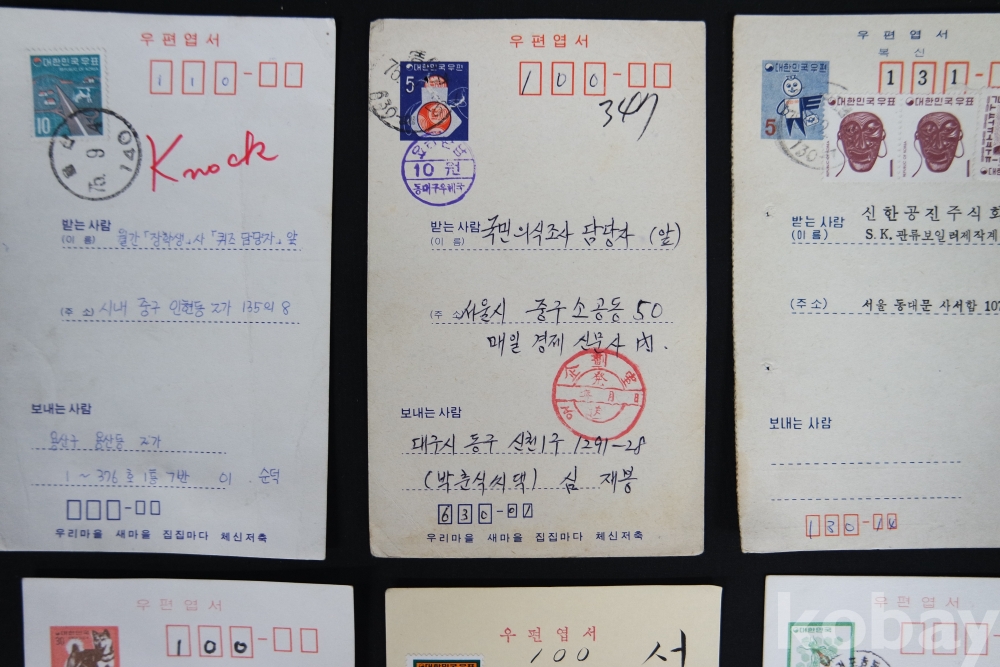 우편엽서
대한민국우표
REPUBLIC OF KOREA
10
110-
75. 9
140
Knock
받는사람
(이 름) 월간「장학생」사「퀴즈 담당자」앞
(주 소) 시내 중구 인현동 2가 135의 8
보내는사람
용산구 용산동 2가
1~376호 1통 7반 이 순덕
우리마을 새마을 집집마다 체신저축
우편엽서
대한민국우편
5
100-
347
630-
10원
동대구우체국
받는사람
(이 름) 국민의식조사 담당자 (앞)
(주 소) 서울시 중구 소공동 50
매일 경제 신문사 内.
年 月 日
보내는사람
대구시 동구 신천1구 1291-28
(박춘식씨댁) 심 재봉
630-01
우리마을 새마을 집집마다 체신저축
우편엽서
복신
대한민국우편
5
131-
대한민국우표
대한민국우표
130-
받는사람 신한공진주식회
(이 름) S.K.관류보일러제작계
(주 소) 서울 동대문 사서함 107
보내는사람
130-14
우편엽서
대한민국우표
100-
우편엽서
대한민국우표
100
서
우편엽서
대한민국
kobay